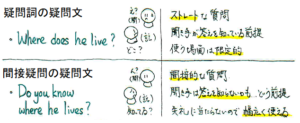 疑問詞の疑問文
・Where does he live?
え?
(聞)
(話)
どこ?
ストレートな質問
聞き手が答えを知っている前提
使う場面は限定的
間接疑問の疑問文
・Do you know
where he lives?
え?
(聞)
(話)
知ってる?
間接的な質問
聞き手は答えを知らないかも、という前提
失礼に当たらないので幅広く使える